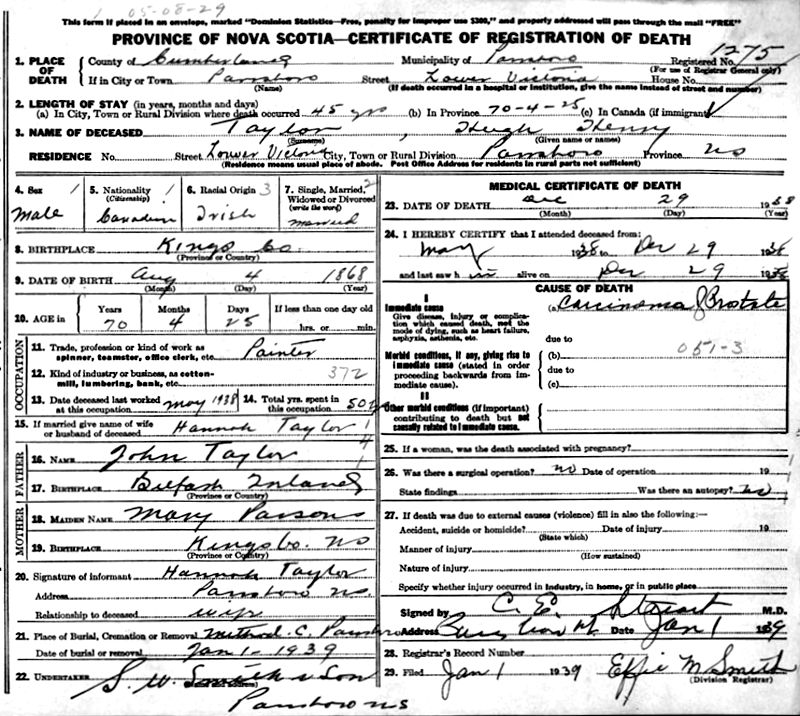 1 05-08-29
This form if placed in an envelope, marked "Dominion Statistics—Free, penalty for improper use $300," and properly addressed will pass through the mail "FREE"
PROVINCE OF NOVA SCOTIA—CERTIFICATE OF REGISTRATION OF DEATH
1. PLACE OF DEATH
County of Cumberland Municipality of Parrsboro Registered No. 1275
(For use of Registrar General only)
If in City or Town Parrsboro Street Lower Victoria House No.
(Name) (If death occurred in a hospital or institution, give the name instead of street and number)
2. LENGTH OF STAY (in years, months and days)
(a) In City, Town or Rural Division where death occurred 45 yrs (b) In Province 70-4-25 (c) In Canada (if immigrant)
3. NAME OF DECEASED Taylor, Hugh Henry
(Surname) (Given name or names)
RESIDENCE No. Street Lower Victoria City, Town or Rural Division Parrsboro Province NS
(Residence means usual place of abode. Post Office Address for residents in rural parts not sufficient)
4. Sex 1
Male
5. Nationality 1
(Citizenship)
Canadian
6. Racial Origin 3
Irish
7. Single, Married, 2
Widowed or Divorced
(write the word)
Married
8. BIRTHPLACE Kings Co.
(Province or Country)
9. DATE OF BIRTH Aug 4 1868
(Month) (Day) (Year)
10. AGE in
Years Months Days If less than one day old
70 4 25 hrs. or min.
OCCUPATION
11. Trade, profession or kind of work as spinner, teamster, office clerk, etc. Painter
12. Kind of industry or business, as cotton-mill, lumbering, bank, etc. 372
13. Date deceased last worked at this occupation May 1938
14. Total yrs. spent in this occupation 50 yrs
15. If married give name of wife or husband of deceased Hannah Taylor
FATHER
16. NAME John Taylor
17. BIRTHPLACE Belfast Ireland
(Province or Country)
MOTHER
18. MAIDEN NAME Mary Parsons
19. BIRTHPLACE Kings Co. NS
(Province or Country)
20. Signature of informant Hannah Taylor
Address Parrsboro NS.
Relationship to deceased wife
21. Place of Burial, Cremation or Removal Method. C. Parrsboro
Date of burial or removal Jan 1 - 1939
22. UNDERTAKER S. W. Smith & Son
Parrsboro NS
MEDICAL CERTIFICATE OF DEATH
23. DATE OF DEATH Dec 29 1938
(Month) (Day) (Year)
24. I HEREBY CERTIFY that I attended deceased from:
May 1938 to Dec 29 1938
and last saw him alive on Dec 29 1938
CAUSE OF DEATH
I
Immediate cause
Give disease, injury or complication which caused death, not the mode of dying, such as heart failure, asphyxia, asthenia, etc.
(a) Carcinoma of Prostate
due to
Morbid conditions, if any, giving rise to immediate cause (stated in order proceeding backwards from immediate cause).
(b) 051-3
due to
(c)
II
Other morbid conditions (if important) contributing to death but not causally related to immediate cause.
25. If a woman, was the death associated with pregnancy?
26. Was there a surgical operation? no Date of operation 19
State findings Was there an autopsy? no
27. If death was due to external causes (violence) fill in also the following:—
Accident, suicide or homicide? Date of injury 19
(State which)
Manner of injury
(How sustained)
Nature of injury
Specify whether injury occurred in industry, in home, or in public place
Signed by C. E. Stuart M.D.
Address Date Jan 1 1939
28. Registrar's Record Number
29. Filed Jan 1 1939 Effie M Smith
(Division Registrar)